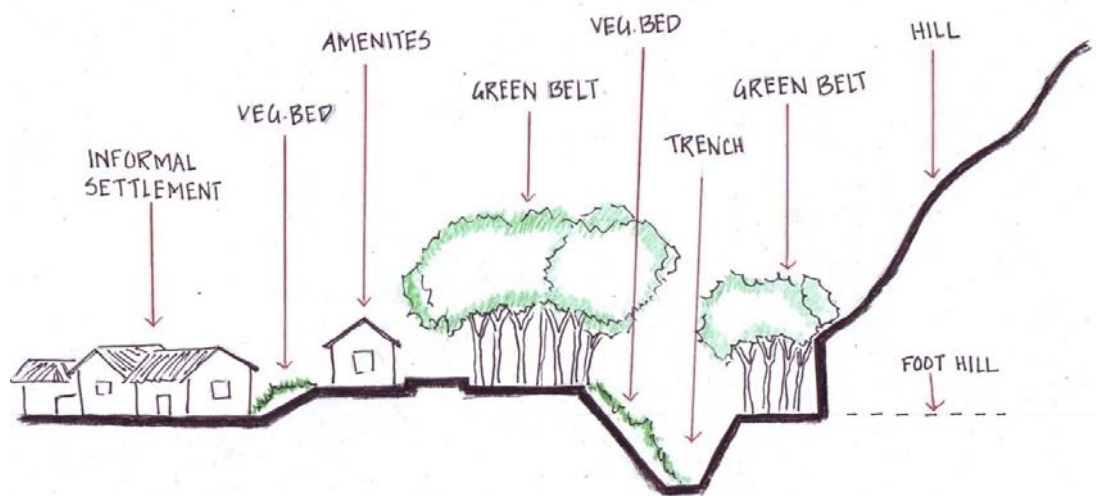 INFORMAL
SETTLEMENT
VEG.BED
AMENITES
GREEN BELT
VEG.BED
TRENCH
GREEN BELT
HILL
FOOT HILL